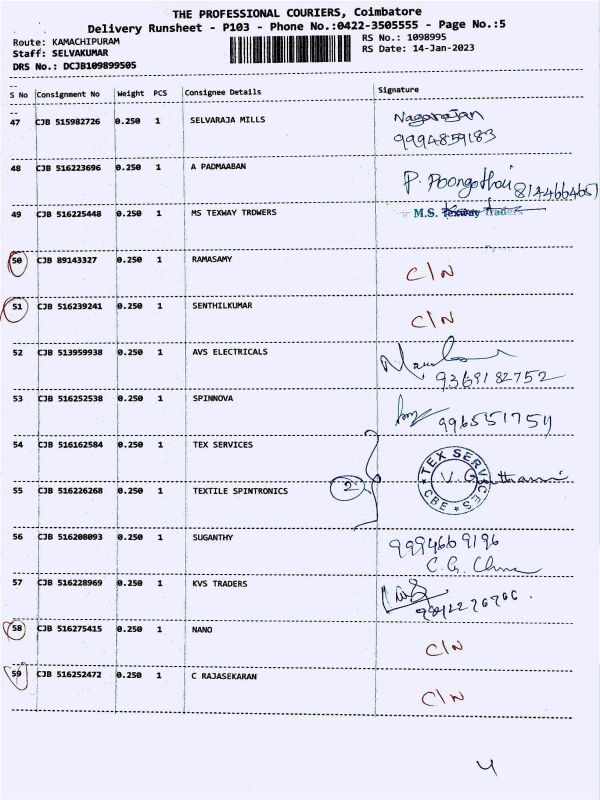 THE PROFESSIONAL COURIERS, Coimbatore
Delivery Runsheet - P103 - Phone No.:0422-3505555 - Page No.:5
Route: KAMACHIPURAM RS No.: 1098995
Staff: SELVAKUMAR RS Date: 14-Jan-2023
DRS No.: DCJB109899505
S No Consignment No Weight PCS Consignee Details Signature
47 CJB 515982726 0.250 1 SELVARAJA MILLS Nagarajan
9994859183
48 CJB 516223696 0.250 1 A PADMAABAN P. Poongothai 8144664651
49 CJB 516225448 0.250 1 MS TEXWAY TRDWERS M.S. Texway Traders
50 CJB 89143327 0.250 1 RAMASAMY C/N
51 CJB 516239241 0.250 1 SENTHILKUMAR C/N
52 CJB 513959938 0.250 1 AVS ELECTRICALS
9369182752
53 CJB 516252538 0.250 1 SPINNOVA 996551754
54 CJB 516162584 0.250 1 TEX SERVICES TEX SERVICES CBE
55 CJB 516226268 0.250 1 TEXTILE SPINTRONICS 2
56 CJB 516208093 0.250 1 SUGANTHY 9994669196
C.G.
57 CJB 516228969 0.250 1 KVS TRADERS
58 CJB 516275415 0.250 1 NANO C/N
59 CJB 516252472 0.250 1 C RAJASEKARAN C/N
4